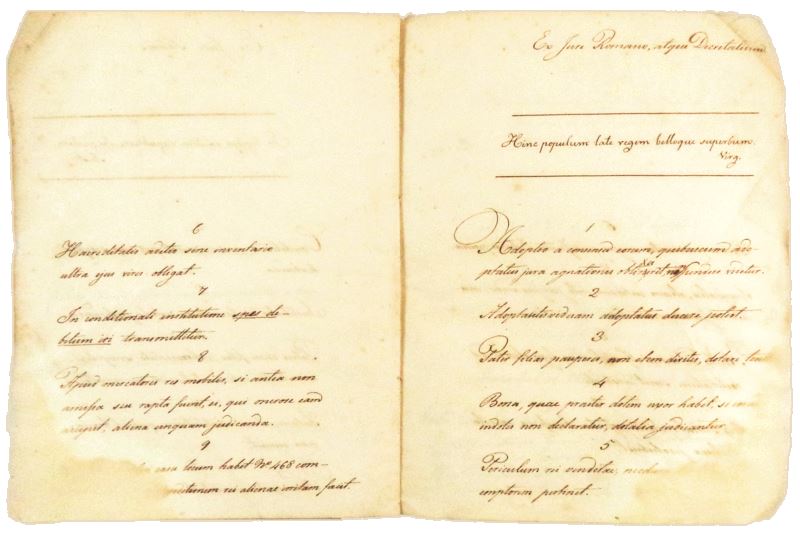 6
Haereditatis aditio sine inventario
ultra ejus vires obligat.
7
In conditionali institutione spes de-
bitum iri transmittitur.
8
Apud mercatores res mobiles, si antea non
amissa seu rapta fuerit, ei, qui onerose eam
accepit, aliena unquam judicanda.
9
casu locum habet Nº 468 com-
rei alienae irritam facit.
Ex Jure Romano, atque Decretalium
Hinc populum late regem belloque superbum.
Virg.
1
Adoptio a connubio eorum, quibuscum ado-
ptatus jura agnationis
2
Adoptantis viduam adoptatus ducere potest.
3
Pater filias pauperes, non etiam divites, dotare
4
Bona, quae praeter dotem uxor habet, si
indola non declaratur, dotalia judicantur
5
Periculum rei venditae,
emptorem pertinet.